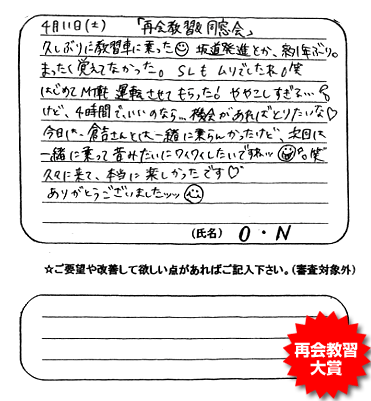 4月11日(土) 「再会教習&同窓会」
久しぶりに教習車に乗った 坂道発進とか、約1年ぶり。
まったく覚えてなかった。SLもムリでしたね。笑
はじめてMT車 運転させてもらった! ややこしすぎる…
けど、4時間で、いいのなら…機会があればとりたいな♡
今日は、倉吉さんとは一緒に乗らんかったけど、次回は
一緒に乗って昔みたいにワイワイしたいですねッ 笑
久々に来て、本当に楽しかったです♡
ありがとうございましたッッ
(氏名) O・N
☆ご要望や改善して欲しい点があればご記入下さい。(審査対象外)
再会教習
大賞